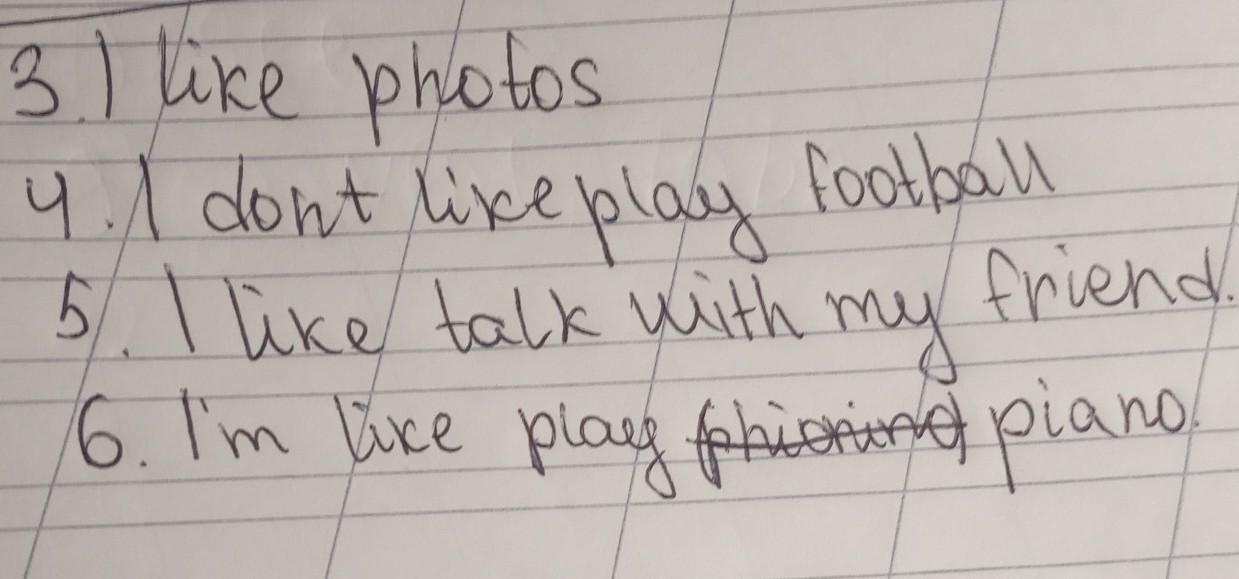 3. I like photos
4. I dont like play football
5. I like talk with my friend.
6. I'm like play piano.